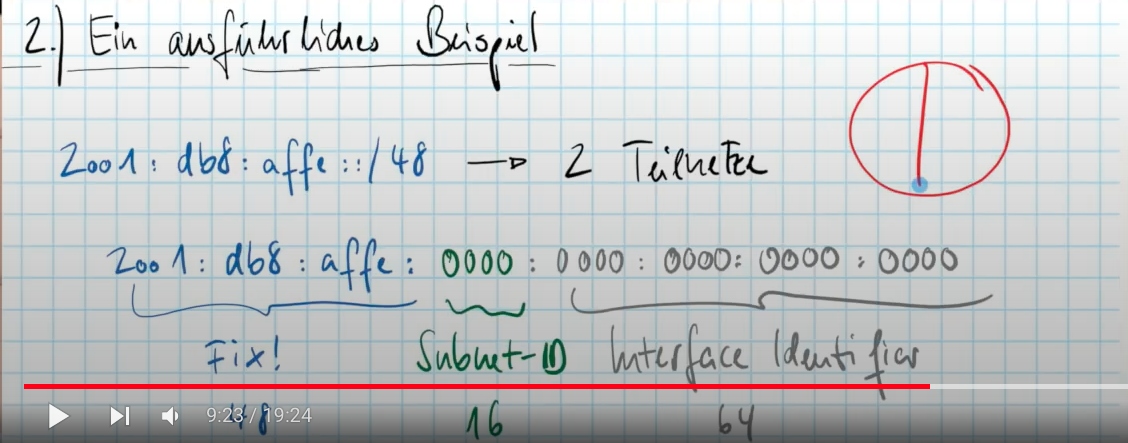 2.) Ein ausführliches Beispiel
2001: db8: affe::/48 → 2 Teilnetze
2001: db8: affe: 0000: 0000: 0000: 0000: 0000
Fix! Subnet-ID Interface Identifier
48 16 64
9:23 / 19:24